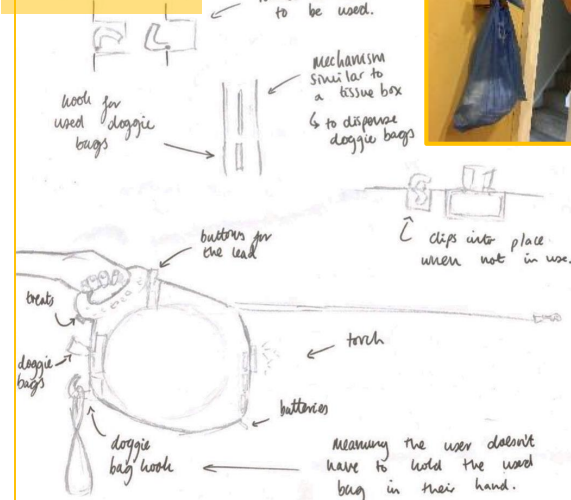 to be used.
mechanism
similar to
a tissue box
↳ to dispense
doggie bags
hook for
used doggie
bags
clips into place
when not in use.
buttons for
the lead
treats
doggie
bags
torch
batteries
doggie
bag hook
Meaning the user doesn't
have to hold the used
bag in their hand.